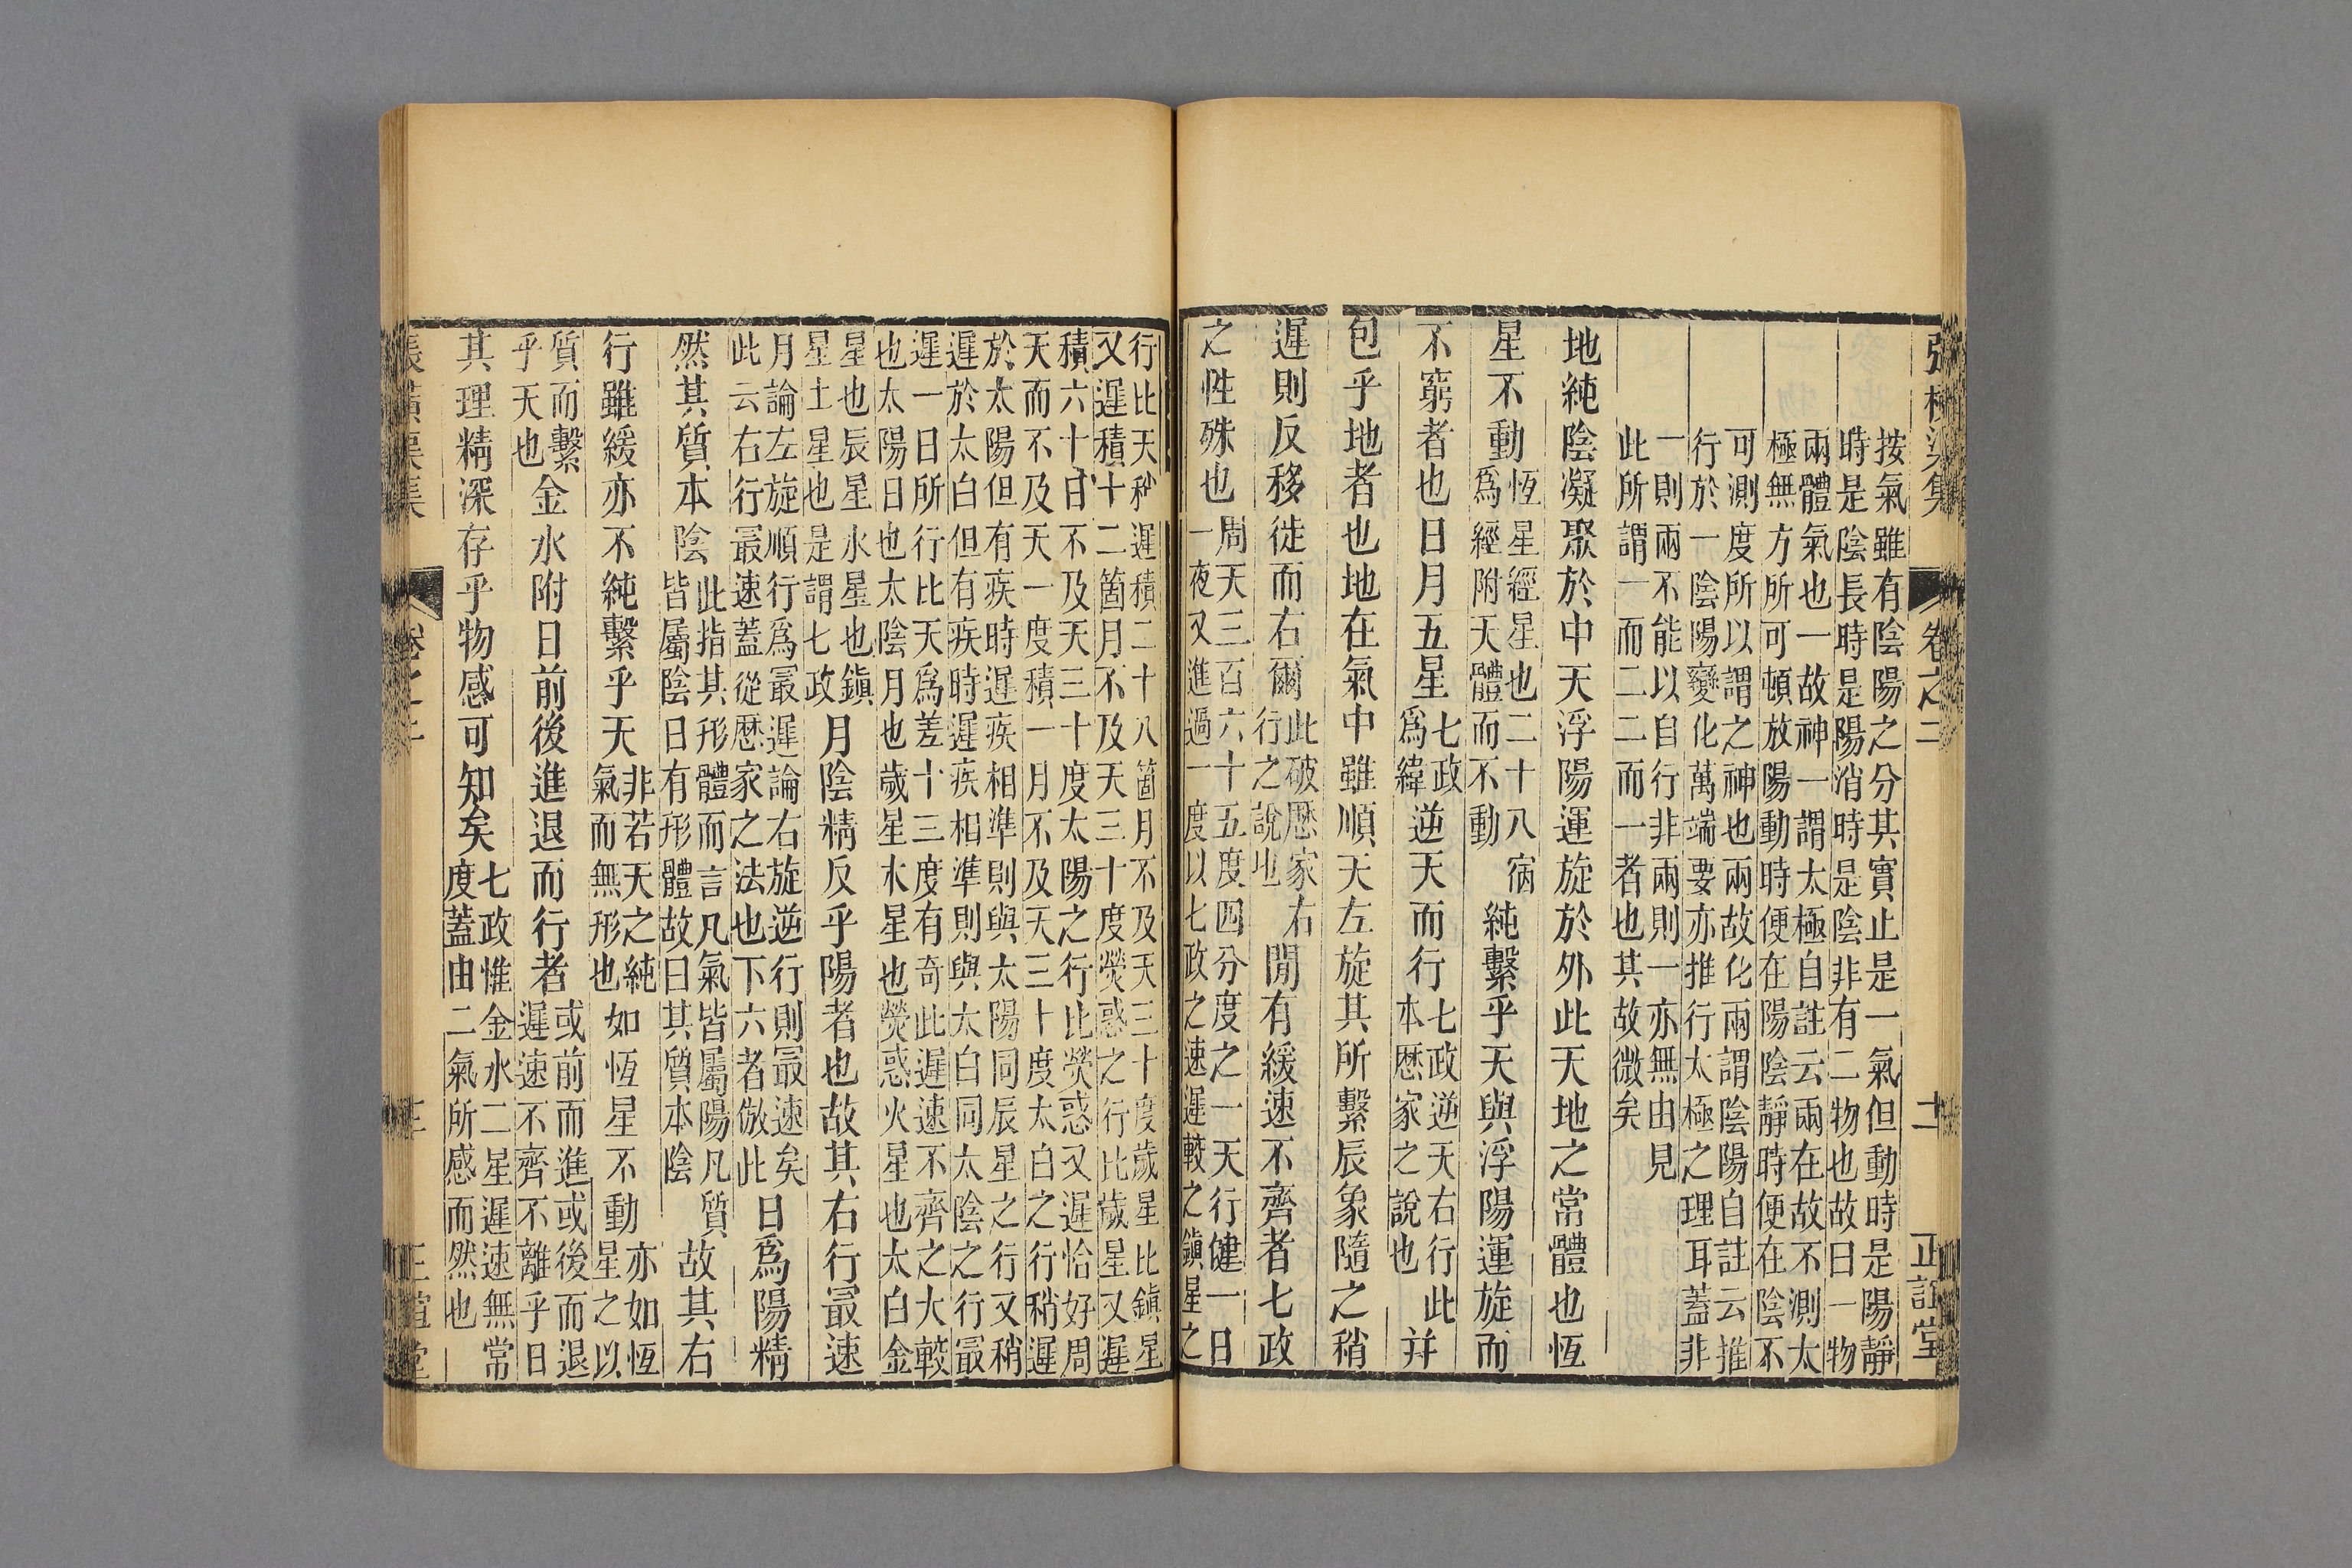 張橫渠集　卷之二　二　正誼堂
按氣雖有陰陽之分其實止是一氣但動時是陽靜
時是陰長時是陽消時是陰非有二物也故曰一物
兩體氣也一故神一謂太極自註云兩在故不測太
極無方所可頓放陽動時便在陽陰靜時便在陰不
可測度所以謂之神也兩故化兩謂陰陽自註云推
行於一陰陽變化萬端要亦推行太極之理耳蓋非
一則兩不能以自行非兩則一亦無由見
此所謂一而二二而一者也其故微矣
地純陰凝聚於中天浮陽運旋於外此天地之常體也恆
星不動
恆星經星也二十八宿
爲經附天體而不動
純繫乎天與浮陽運旋而
不窮者也日月五星
七政
爲緯
逆天而行
七政逆天右行此
本歷家之說也
幷
包乎地者也地在氣中雖順天左旋其所繫辰象隨之稍
遲則反移徙而右爾
此破歷家右
行之說也
閒有緩速不齊者七政
之性殊也
周天三百六十五度四分度之一天行健一日
一夜又進過一度以七政之速遲較之鎮星之
行比天稍遲積二十八箇月不及天三十度歲星比鎮星
又遲積十二箇月不及天三十度熒惑之行比歲星又遲
積六十日不及天三十度太陽之行比熒惑又遲恰好周
天而不及天一度積一月不及天三十度太白之行稍遲
於太陽但有疾時遲疾相準則與太陽同辰星之行又稍
遲於太白但有疾時遲疾相準則與太白同太陰之行最
遲一日所行比天爲差十三度有奇此遲速不齊之大較
也太陽日也太陰月也歲星木星也熒惑火星也太白金
星也辰星水星也鎮
星土星也是謂七政
月陰精反乎陽者也故其右行最速
月論左旋順行爲最遲論右旋逆行則最速矣
此云右行最速蓋從歷家之法也下六者倣此
日爲陽精
然其質本陰
此指其形體而言凡氣皆屬陽凡質
皆屬陰日有形體故曰其質本陰
故其右
行雖緩亦不純繫乎天
非若天之純
氣而無形也
如恆星不動
亦如恆
星之以
質而繫
乎天也
金水附日前後進退而行者
或前而進或後而退
遲速不齊不離乎日
其理精深存乎物感可知矣
七政惟金水二星遲速無常
度蓋由二氣所感而然也
張橫渠集　卷之二　三　正誼堂